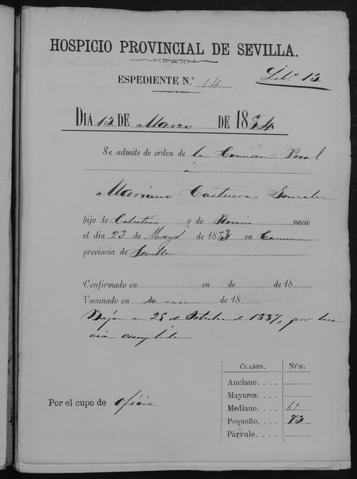 HOSPICIO PROVINCIAL DE SEVILLA.
ESPEDIENTE N.º 14
Lib.º 13
DIA 12 DE Marzo DE 1884
Se admite de órden de la Comision Prov.l
á
Mariano
hijo de y de Rosario nació
el dia 23 de Mayo de 1873 en
provincia de Sevilla
Confirmado en en de de 18
Vacunado en de de 18
Baja en 25 de Octubre de 1887, por
cumplido
CLASES. NÚM.
Anciano. . . .
Mayores. . . .
Mediano . . . 61
Pequeño. . . . 73
Párvulo. . . .
Por el cupo de oficio